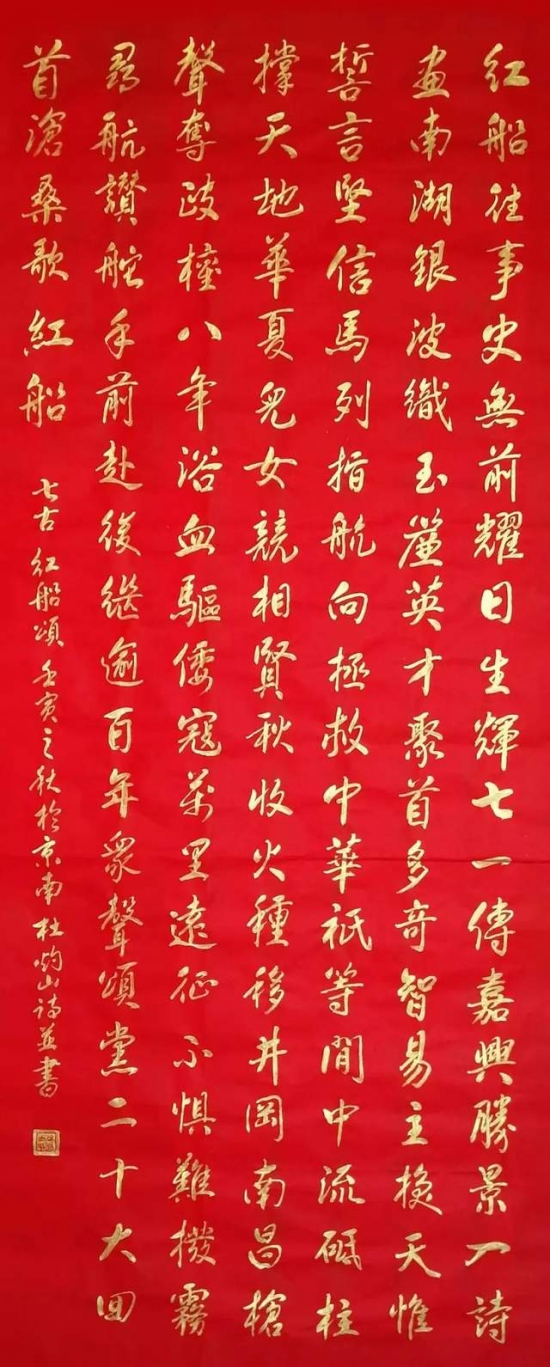 红船往事史無前耀日生輝七一傳嘉興勝景入詩
畫南湖銀波織玉簾英才聚首多奇智易主換天惟
誓言堅信馬列指航向拯救中華衹等閒中流砥柱
撐天地華夏兒女競相賢秋收火種移井岡南昌槍
聲奪政權八年浴血驅倭寇萬里遠征不懼難撥霧
尋航讚舵手前赴後继逾百年眾聲頌黨二十大回
首滄桑歌紅船
七古红船頌壬寅之秋於京南杜灼山詩並書